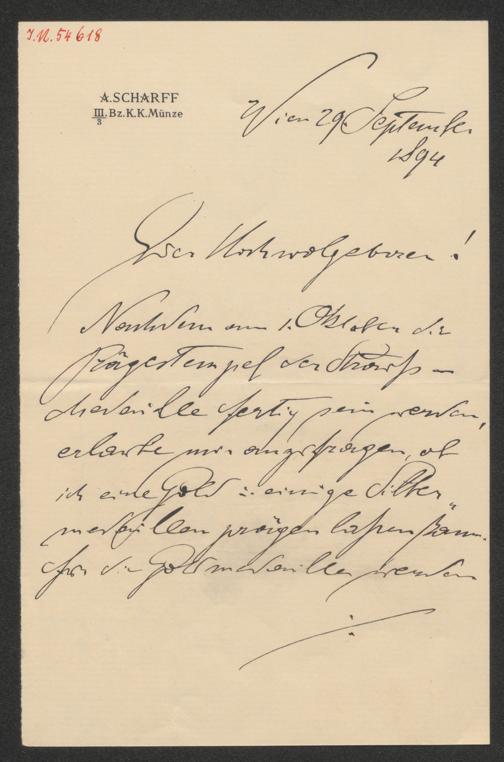 J.N. 54618
A. SCHARFF
III/3. Bz. K.K. Münze
Wien 29. September
1894
Euer Hochwolgeboren!
Nachdem am 1. Oktober die
Prägestempel der Strauß-
Medaille fertig sein werden,
erlaube mir anzufragen, ob
ich eine Gold u. einige Silber
medaillen prägen laßen kann.
für die Goldmedaille werden
./.